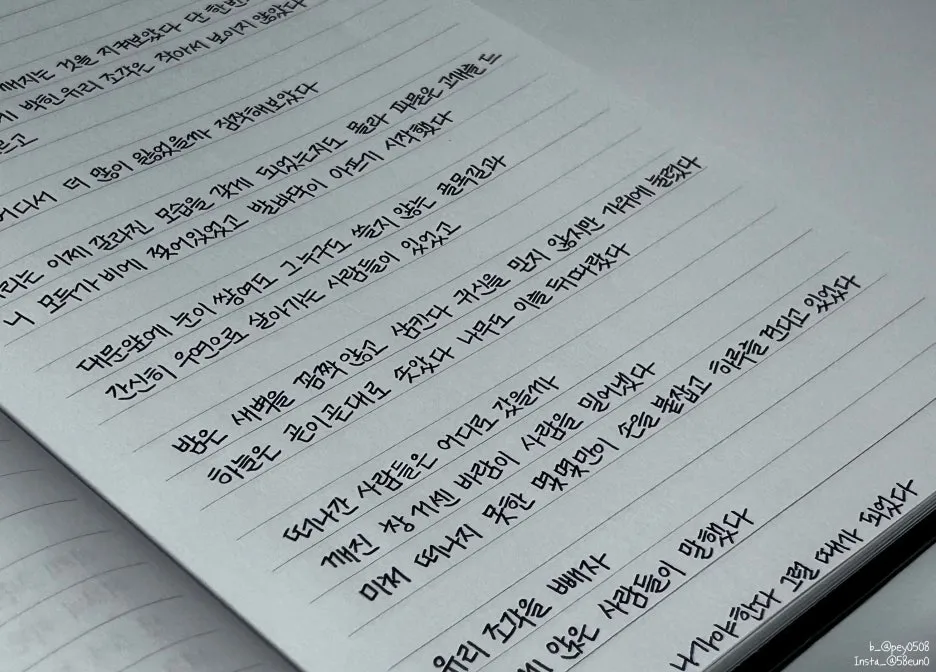 깨지는 것을 지켜보았다 단 한번
게 박힌 유리 조각은 작아서 보이지 않았다
르고
어디서 더 많이 잃었을까 짐작해보았다
리는 이제 갈라진 모습을 갖게 되었는지도 몰라 파묻은 고개를 드
니 모두가 비에 젖어있었고 발바닥이 아프게 시작했다
대문앞에 눈이 쌓여도 그누구도 쓸지 않는 골목길과
간신히 우연으로 살아가는 사람들이 있었고
밤은 새벽을 꼼짝않고 삼킨다 귀신을 믿지 않지만 가위에 눌렸다
하늘은 곧이곧대로 쏫았다 나무도 이를 뒤따랐다
떠나간 사람들은 어디로 갔을까
깨진 창 거센 바람이 사람을 밀어냈다
미처 떠나지 못한 몇몇만이 손을 붙잡고 하루를 견디고 있었다
유리 조각을 빼자
에 앉은 사람들이 말했다
나가야한다 그럴 때가 되었다
b_@pey0508
Insta_@58eun0